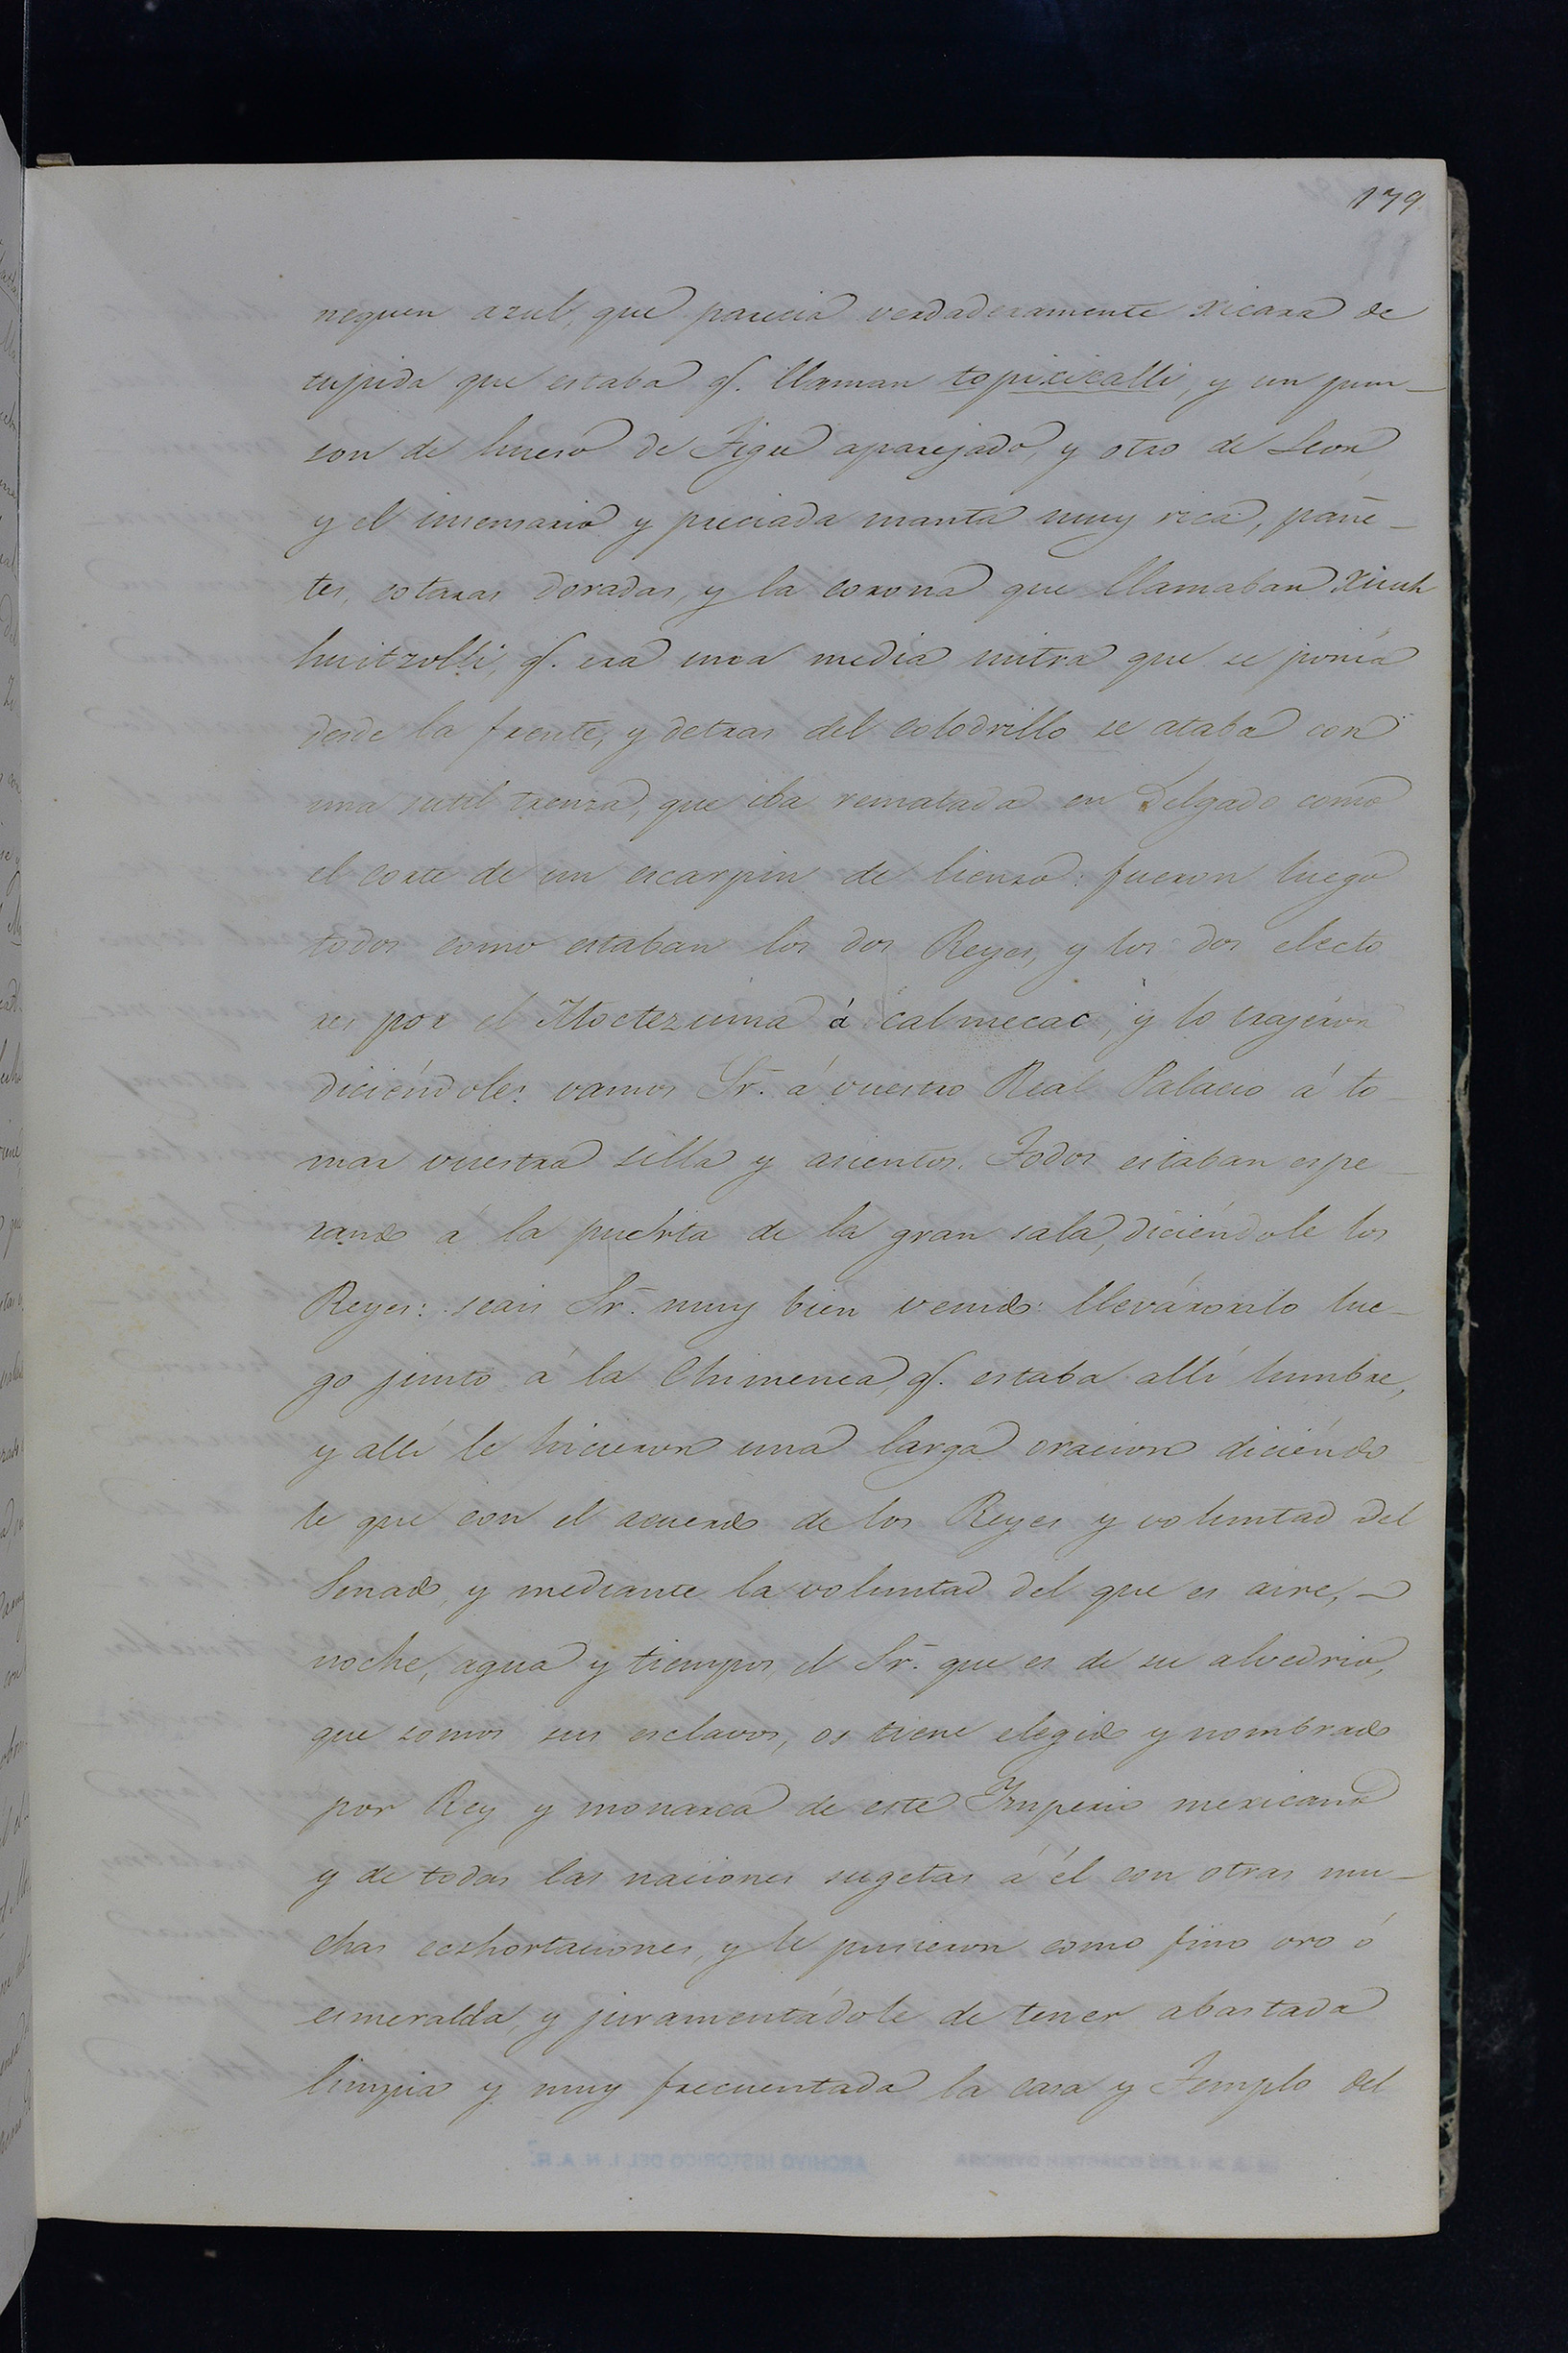 179
nequen azul, que parecia verdaderamente xicara de
tupida que estaba q. llaman topixicalli, y un pun-
son de hueso de Tigre aparejado, y otro de Leon,
y el insensario y preciada manta muy rica, pañe-
tes, cotaras doradas, y la corona que llamaban Xiuh
huitzolli, q. era una media mitra que se ponia
desde la frente, y detras del colodrillo se ataba con
una sutil trenza, que iba rematada en delgado como
el corte de un escarpin de lienzo: fueron luego
todos como estaban los dos Reyes, y los dos electo
res por el Moctezuma á calmecac, y lo trajeron
diciéndole: vamos Sr. á vuestro Real Palacio á to-
mar vuestra silla y asientos. Todos estaban espe-
rando á la puerta de la gran sala, diciéndole los
Reyes: seais Sr. muy bien venido: lleváronlo lue-
go junto á la Chimenea, q. estaba alli lumbre,
y allí le hicieron una larga oracion diciéndo
le que con el acuerdo de los Reyes y voluntad del
Senado, y mediante la voluntad del que es aire, -
noche, agua y tiempos, el Sr. que es de su alvedrio,
que somos sus esclavos, os tiene elegido y nombrado
por Rey y monarca de este Imperio mexicano
y de todas las naciones sugetas á él con otras mu-
chas ecshortaciones, y le pusieron como fino oro ó
esmeralda, y juramentádole de tener abastada
limpia y muy frecuentada la casa y Templo del
ARCHIVO HISTORICO DEL I. N. A. H.
ARCHIVO HISTORICO DEL I. N. A. H.